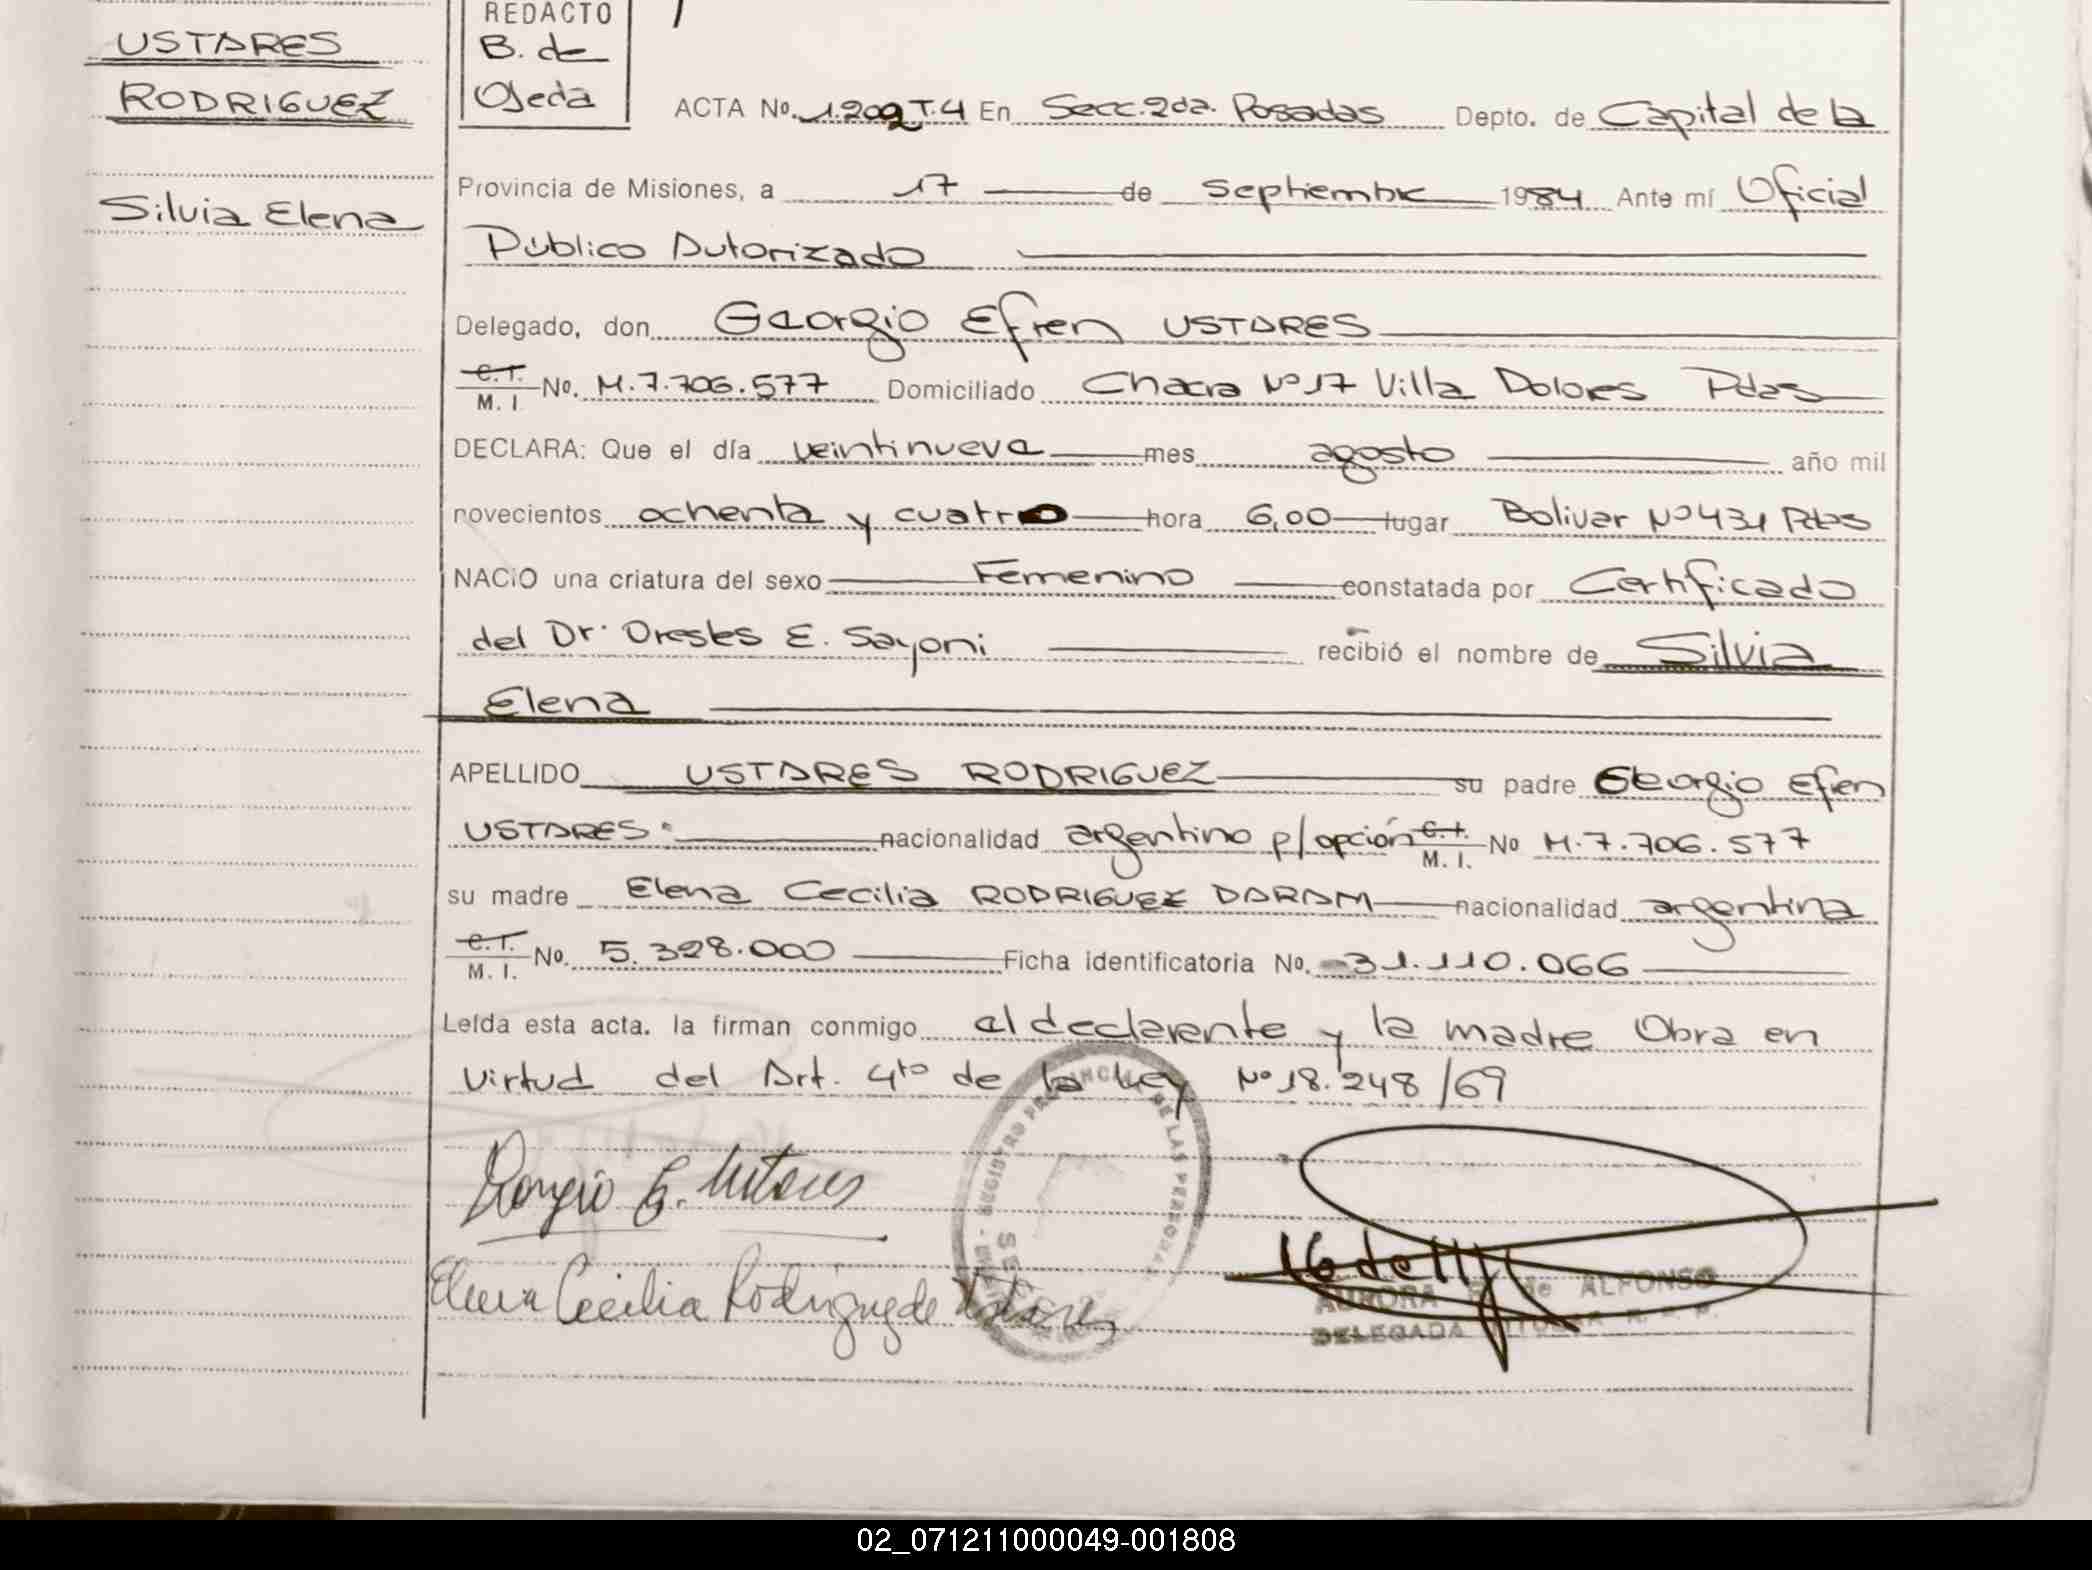 USTARES
RODRIGUEZ
Silvia Elena
REDACTO
B. de
Ojeda
ACTA Nº. 1.202 T.4 En Secc. 2da. Posadas Depto. de Capital de la
Provincia de Misiones, a 17 de Septiembre 1984 Ante mí Oficial
Público Autorizado
Delegado, don Georgio Efren USTARES
C.I. M. I. Nº. M.7.706.577 Domiciliado Chacra Nº 17 Villa Dolores Pdas
DECLARA: Que el día veintinueve mes agosto año mil
novecientos ochenta y cuatro hora 6,00 lugar Bolivar Nº 431 Pdas
NACIO una criatura del sexo Femenino constatada por Certificado
del Dr. Orestes E. Sayoni recibió el nombre de Silvia
Elena
APELLIDO USTARES RODRIGUEZ su padre Georgio Efren
USTARES. nacionalidad argentino p/opción C.I. M. I. Nº M.7.706.577
su madre Elena Cecilia RODRIGUEZ DARAM nacionalidad argentina
C.I. M. I. Nº. 5.328.000 Ficha identificatoria Nº. 31.110.066
Leída esta acta. la firman conmigo el declarante y la madre Obra en
Virtud del Art. 4to de la Ley Nº 18.248/69
REGISTRO PROVINCIAL DE LAS PERSONAS
Georgio E. Ustares
Elena Cecilia Rodriguez de Ustares
AURORA de ALFONSO
DELEGADA
02_071211000049-001808